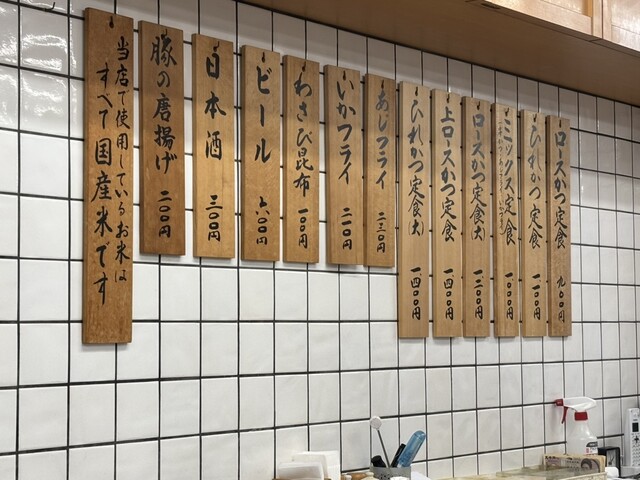 ロースかつ定食 九〇〇円
ひれかつ定食 一、一〇〇円
ミックス定食
一、〇〇〇円
ロースかつ定食(大) 一、二〇〇円
上ロースかつ定食 一、四〇〇円
ひれかつ定食(大) 一、四〇〇円
あじフライ 二三〇円
いかフライ 二一〇円
わさび昆布 一〇〇円
ビール 六〇〇円
日本酒 三〇〇円
豚の唐揚げ 二〇〇円
当店で使用しているお米は
すべて国産米です